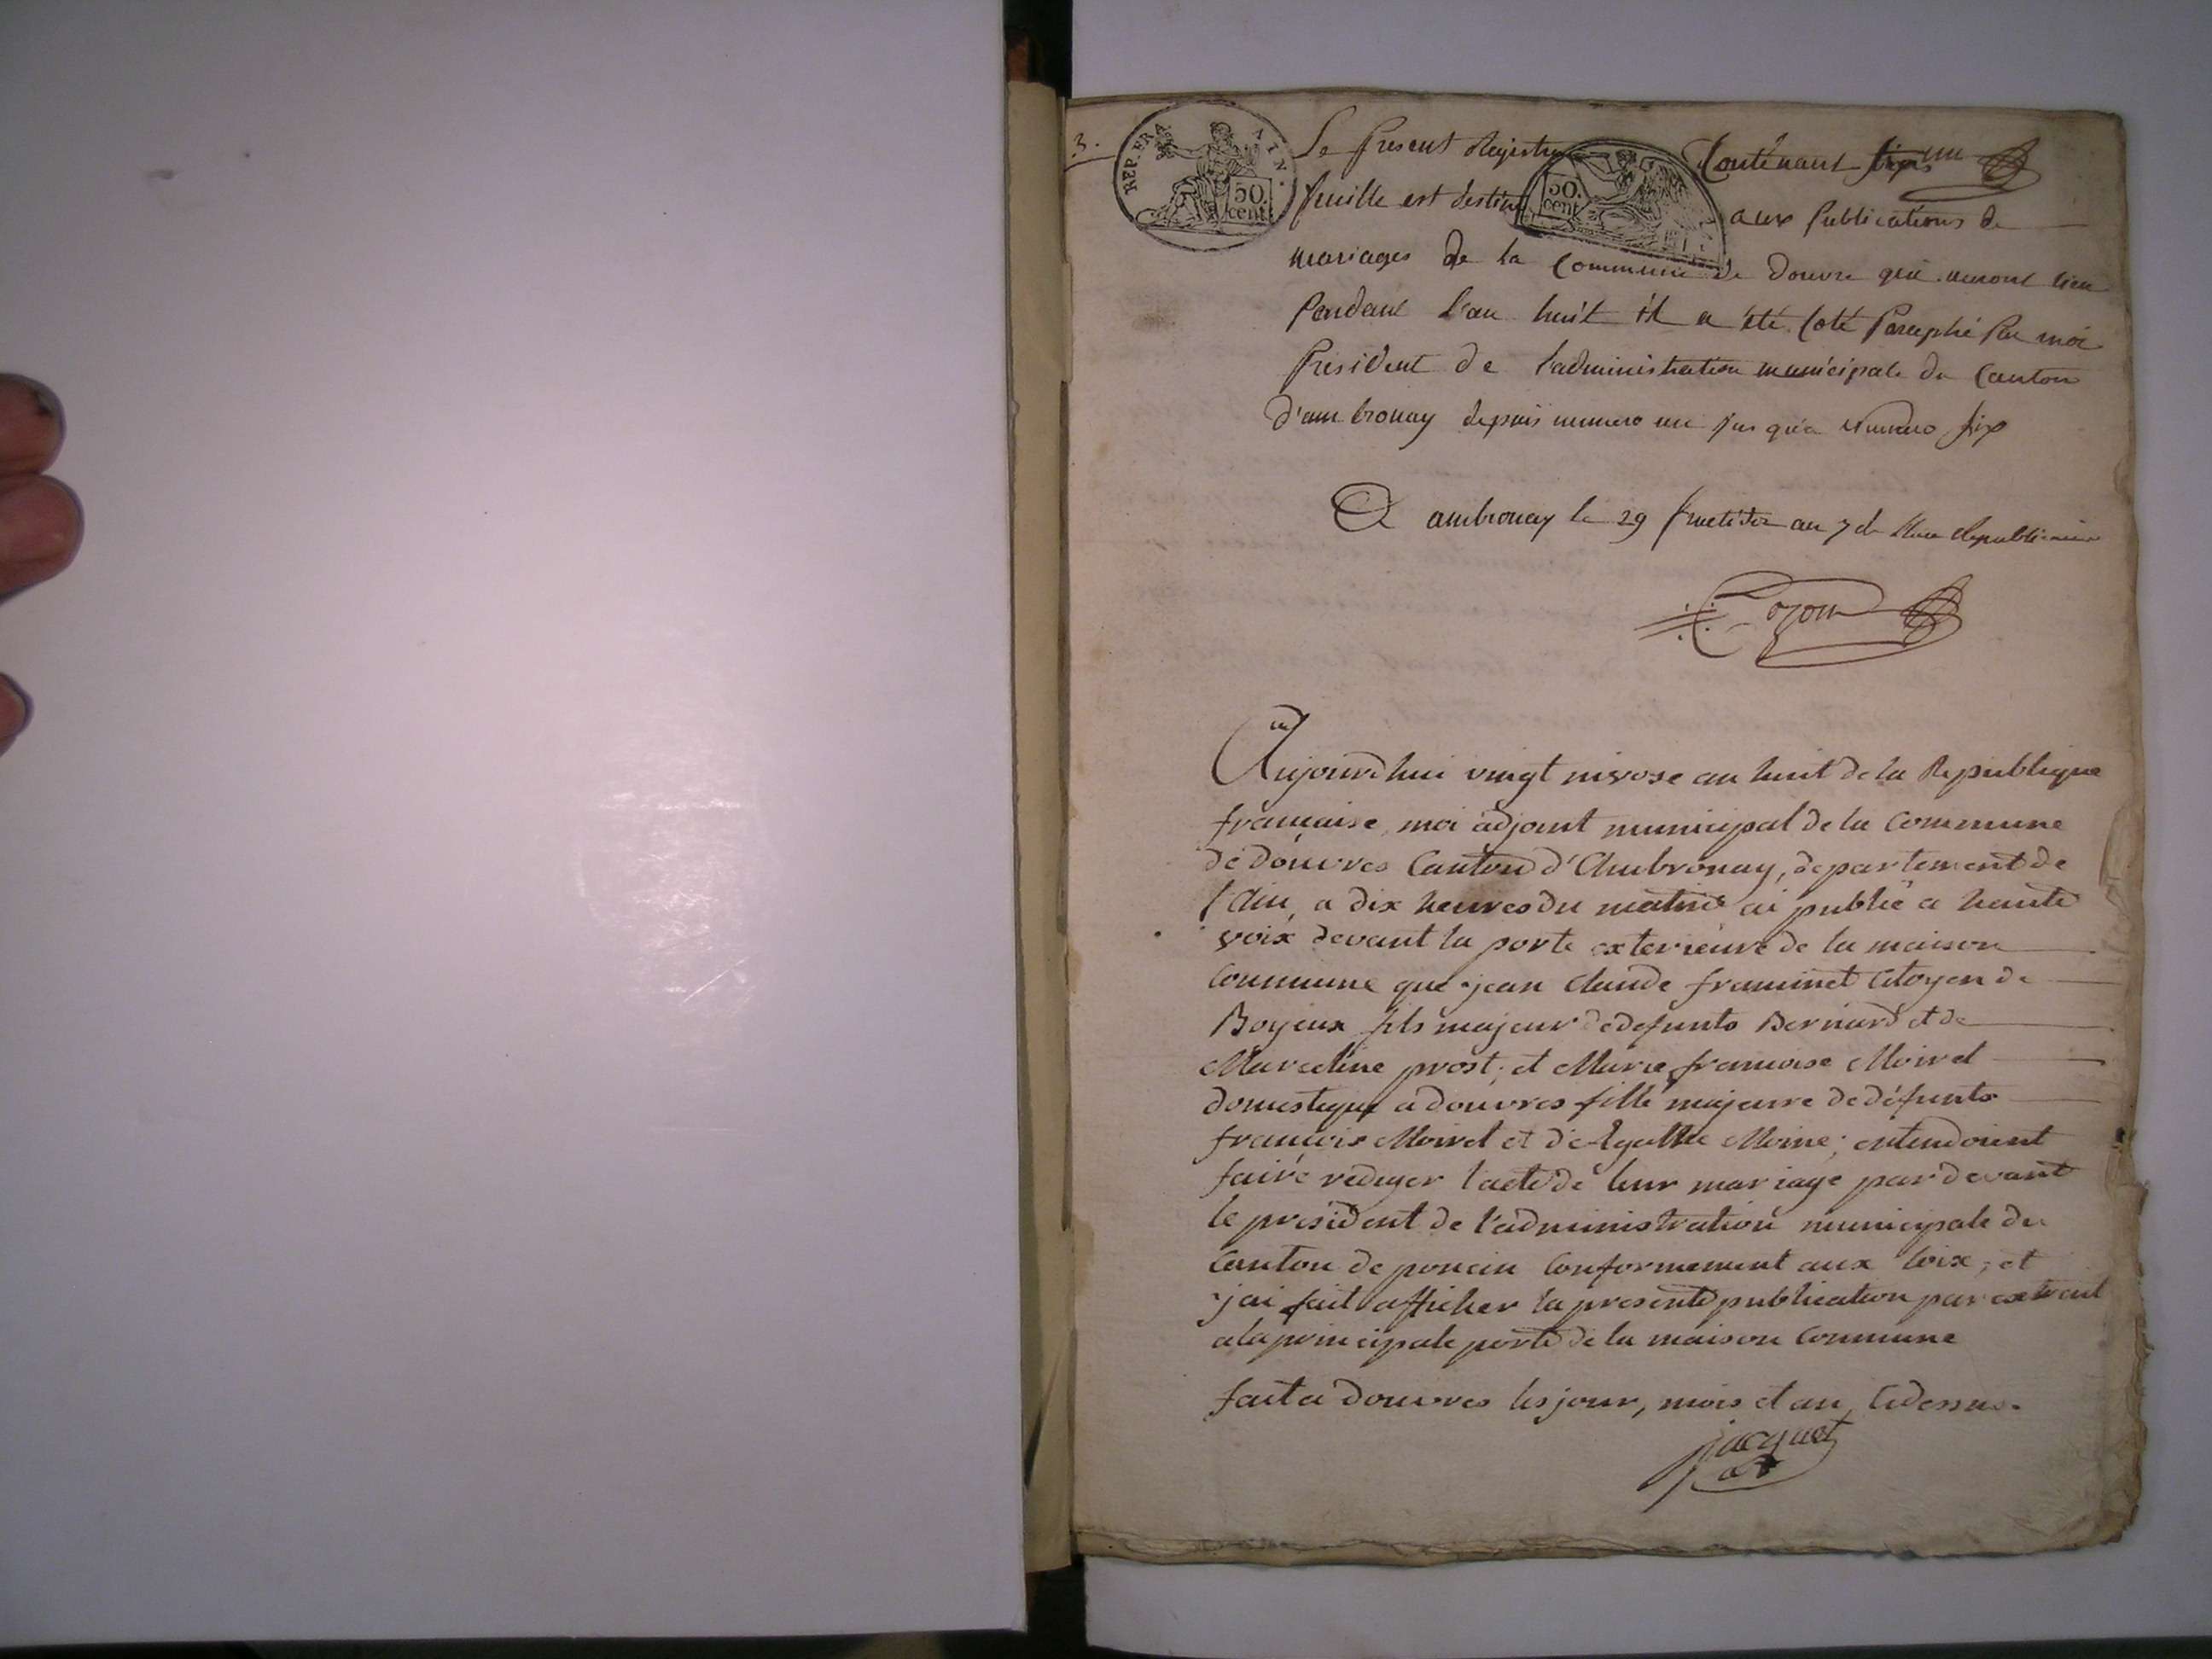 3.
REP. FRA. AIN.
50. cent.
50. cent
Le present Registre Contenant six
feuille est destiné aux publications de
mariages de la Commune de douvre qui auront lieu
pendant l'an huit il a été Coté Paraphé Par moi
President de l'administration municipale du Canton
d'ambronay depuis numero un jusqu'a Numero six
A ambronay le 29 fructidor an 7 de l'Ere Republicaine
Aujourdhui vingt nivose an huit de la Republique
francaise, moi adjoint municipal de la Commune
de douvres Canton d'Ambronay, departement de
l'Ain, a dix heures du matin ai publié a haute
voix devant la porte exterieure de la maison
Commune que jean Claude framinet Citoyen de
Boyeux fils majeur de defunts Bernard et de
Marceline prost; et Marie francoise Moirel
domestique a douvres fille majeure de défunts
francois Moirel et d'Agathe Moine; entendoient
faire rediger l'acte de leur mariage par devant
le president de l'administration municipale du
Canton de poncin Conformement aux loix; et
j'ai fait afficher la presente publication par extrait
a la principale porte de la maison Commune
fait a douvres les jour, mois et an, Cidessus.
jacquet